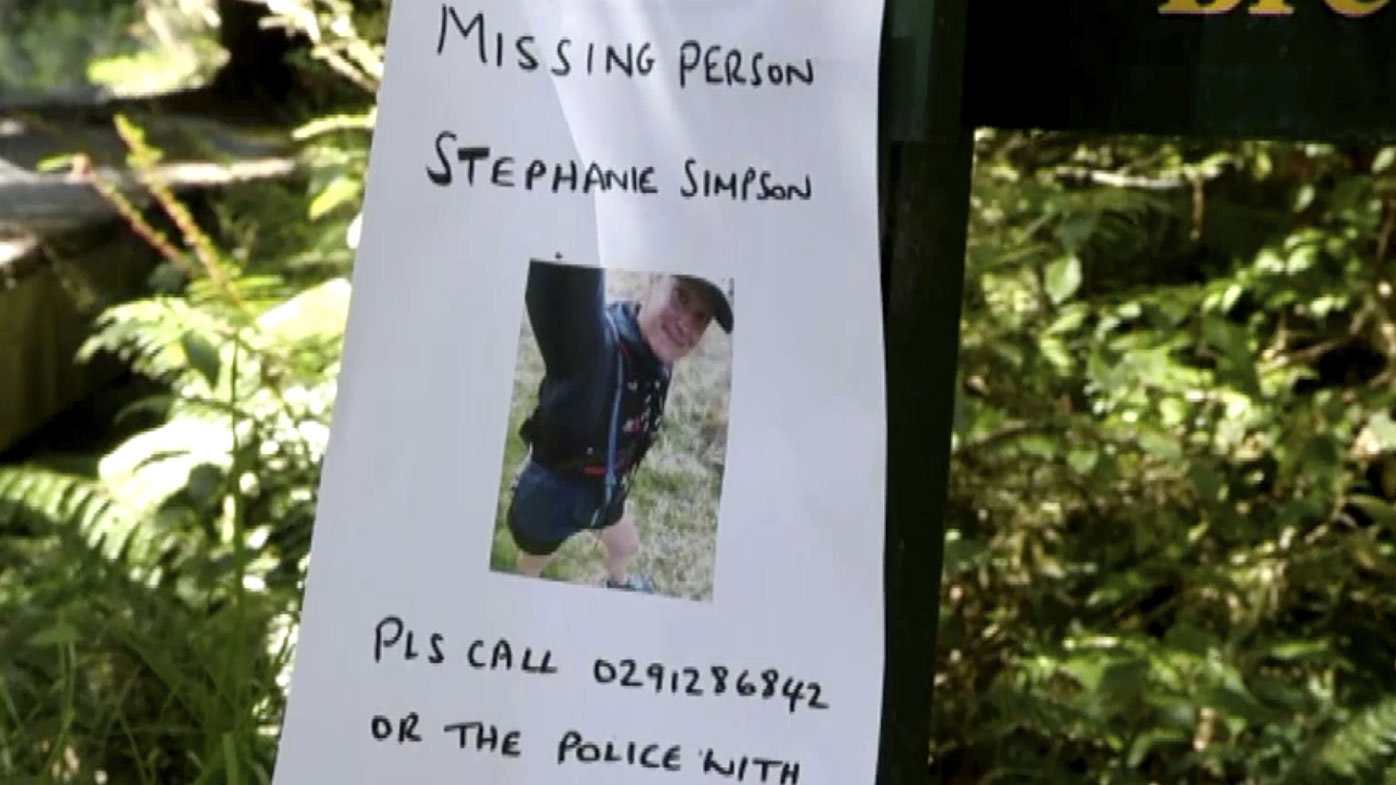 MISSING PERSON
STEPHANIE SIMPSON
PLS CALL 0291286842
OR THE POLICE WITH